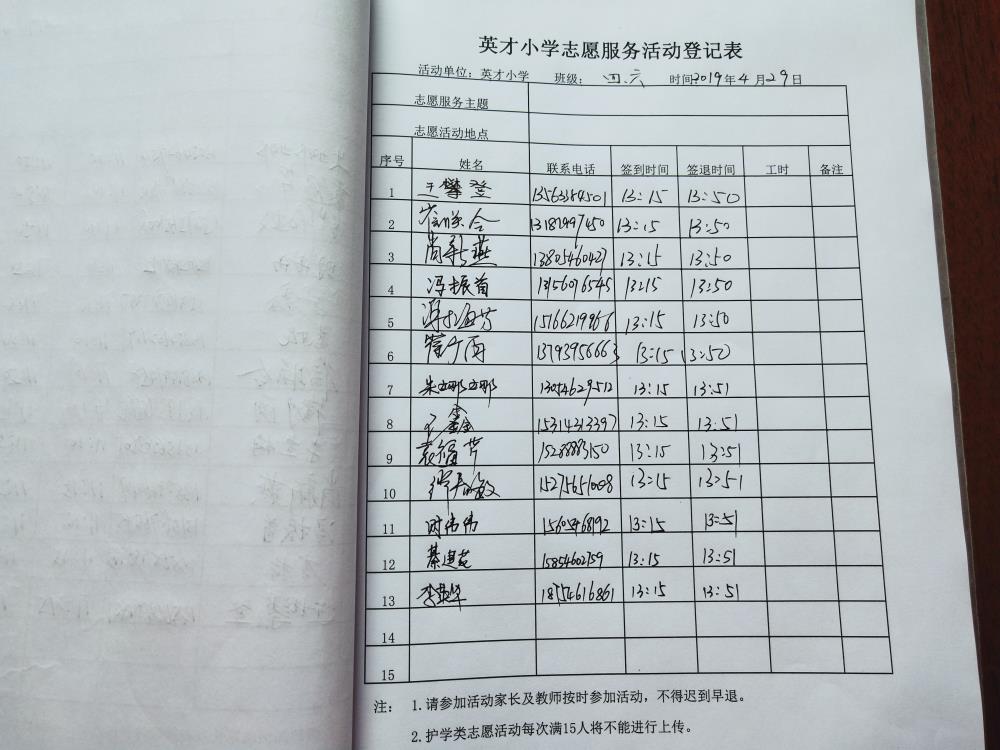 英才小学志愿服务活动登记表
活动单位：英才小学 班级： 四.六 时间2019年4月29日
志愿服务主题
志愿活动地点
序号 姓名 联系电话 签到时间 签退时间 工时 备注
1 王攀登 13563184501 13:15 13:50
2 13:15 13:50
3 尚新燕 13805460427 13:15 13:50
4 冯振首 13156096545 13:15 13:50
5 15166219866 13:15 13:50
6 13793956663 13:15 13:50
7 朱娜娜 13054629512 13:15 13:51
8 王鑫 15314313397 13:15 13:51
9 13:15 13:51
10 13:15 13:51
11 时伟伟 15605468192 13:15 13:51
12 15854602759 13:15 13:51
13 18754616861 13:15 13:51
14
15
注： 1.请参加活动家长及教师按时参加活动，不得迟到早退。
2.护学类志愿活动每次满15人将不能进行上传。